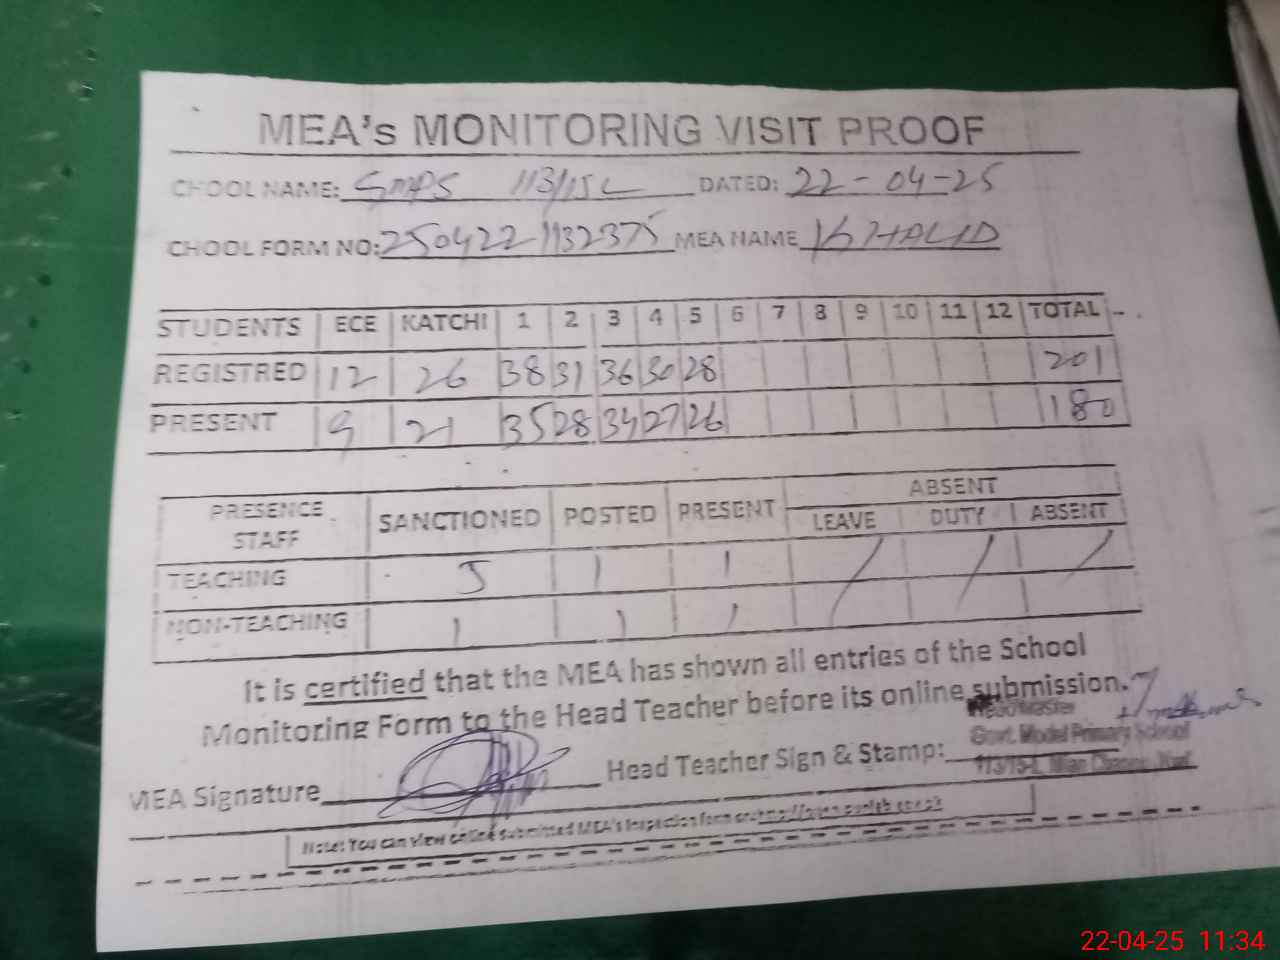 MEA's MONITORING VISIT PROOF
CHOOL NAME: GMPS 113/15L DATED: 22-04-25
CHOOL FORM NO: 2504221132375 MEA NAME KHALID
STUDENTS ECE KATCHI 1 2 3 4 5 6 7 8 9 10 11 12 TOTAL
REGISTRED 12 26 38 31 36 30 28 201
PRESENT 9 21 35 28 34 27 26 180
PRESENCE STAFF SANCTIONED POSTED PRESENT ABSENT
LEAVE DUTY ABSENT
TEACHING 5 1 1 / / /
NON-TEACHING 1 1 1
It is certified that the MEA has shown all entries of the School
Monitoring Form to the Head Teacher before its online submission.
Headmaster
Govt. Model Primary School
113/15-L Mian Channu
MEA Signature Head Teacher Sign & Stamp:
Note: You can view online submitted MEA's inspection form on
22-04-25 11:34